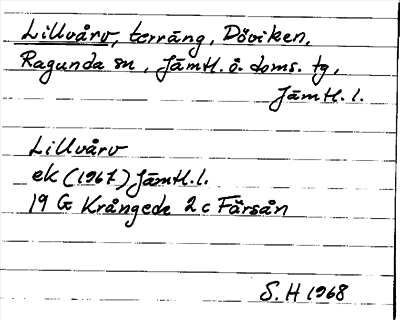 Lillvårv, terräng, Döviken,
Ragunda sn, Jämtl. ö. doms. tg,
Jämtl. l.
Lillvårv
ek (1967) Jämtl. l.
19 G Krångede 2 c Färsån
S. H 1968